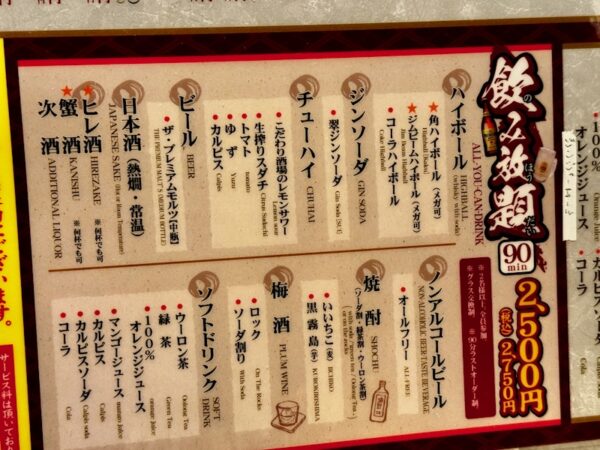 飲み放題
の
ほう
だい
ALL-YOU-CAN-DRINK
90
min
2,500円
(税込) 2,750円
※2名様以上、全員参加
※グラス交換制 ※90分ラストオーダー制
ハイボール
HIGHBALL
(whisky with soda)
★角ハイボール(メガ可)
Highball (Kaku)
★ジムビームハイボール(メガ可)
Jim Beam Highball
コーラハイボール
Coke Highball
ジンソーダ
GIN SODA
翠ジンソーダ
Gin Soda (SUI)
チューハイ
CHUHAI
こだわり酒場のレモンサワー
Lemon sour
生搾りスダチ
Citrus Sudachi
トマト
tomato
ゆず
Yuzu
カルピス
Calpis
ビール
BEER
ザ・プレミアムモルツ(中瓶)
THE PREMIUM MALT'S (MEDIUM BOTTLE)
日本酒(熱燗・常温)
JAPANESE SAKE (Hot or Room Temperature)
★ヒレ酒
HIREZAKE
※何杯でも可
★蟹酒
KANISHU
※何杯でも可
次酒
ADDITIONAL LIQUOR
ノンアルコールビール
NON-ALCOHOLIC BEER-TASTE BEVERAGE
オールフリー
ALL-FREE
焼酎
SHOCHU
(ソーダ割・緑茶割・ウーロン茶割)
いいちこ(麦)
IICHIKO
黒霧島(芋)
KUROKIRISHIMA
梅酒
PLUM WINE
ロック
On The Rocks
ソーダ割り
With Soda
ソフトドリンク
SOFT
DRINK
ウーロン茶
Oolong Tea
緑茶
Green Tea
100%
オレンジジュース
orange juice
マンゴージュース
mango juice
カルピス
Calpis
カルピスソーダ
Calpis soda
コーラ
Cola
100%
オレンジジュース
カルピスソーダ
コーラ
ございます。
サービス料は頂いており